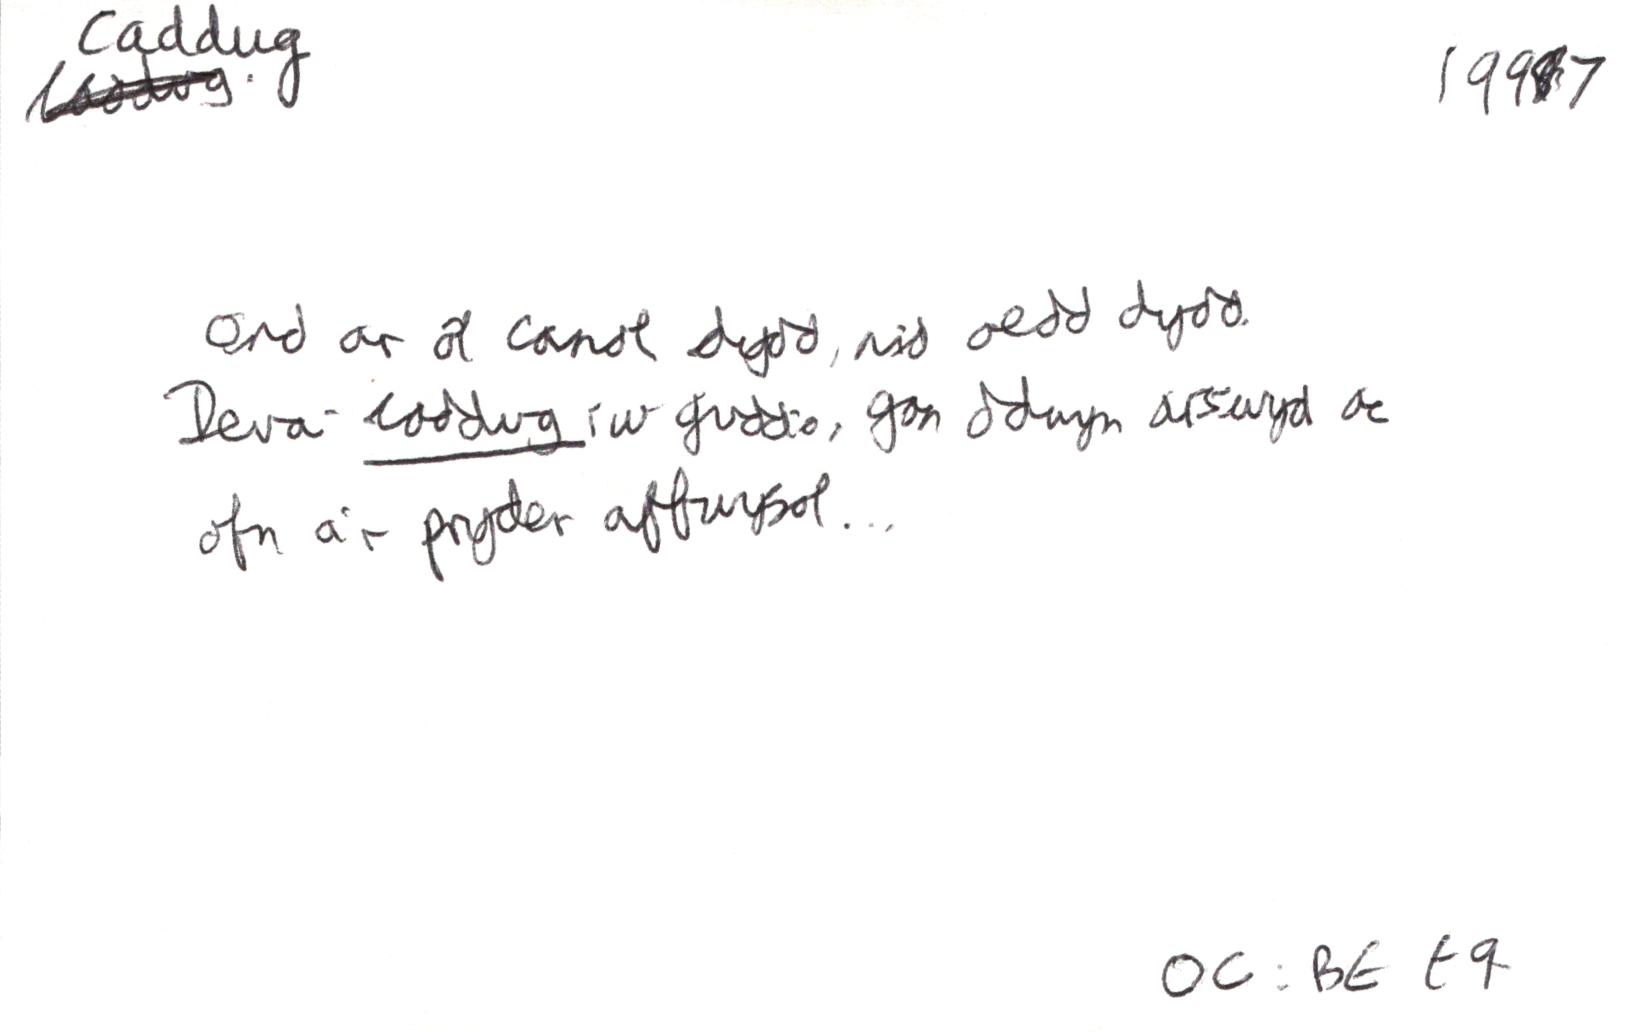 Caddug
1997
Ond ar ôl canol dydd, nid oedd dydd.
Deua caddug i'w guddio, gan ddwyn arswyd ac
ofn a'r pryder affwysol...
OC: BE t9